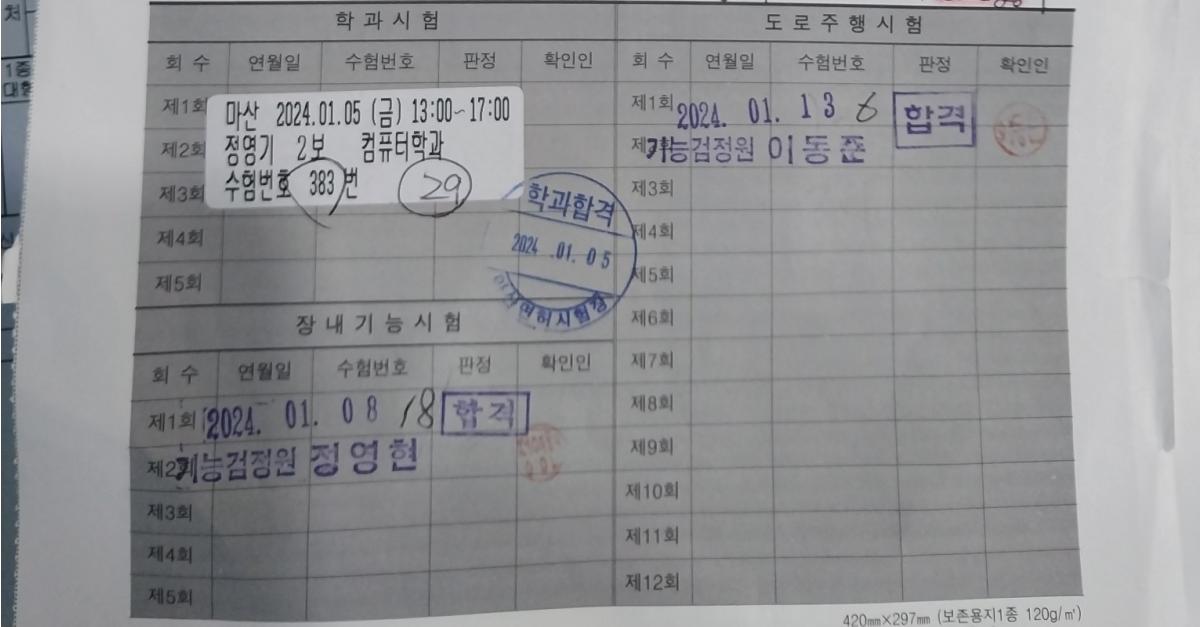 처
1종
대형
학과시험
회 수 연월일 수험번호 판정 확인인
제1회
마산 2024.01.05 (금) 13:00~17:00
제2회
정영기 2보 컴퓨터학과
제3회
수험번호 383번 29
제4회
제5회
학과합격
2024 .01. 05
면허시험장
장내기능시험
회 수 연월일 수험번호 판정 확인인
제1회 2024. 01. 08 18 합격
제2회
기능검정원 정영현
제3회
제4회
제5회
도로주행시험
회 수 연월일 수험번호 판정 확인인
제1회 2024. 01. 13 6 합격
기능검정원 이동준
제3회
제4회
제5회
제6회
제7회
제8회
제9회
제10회
제11회
제12회
420㎜×297㎜ (보존용지1종 120g/㎡)